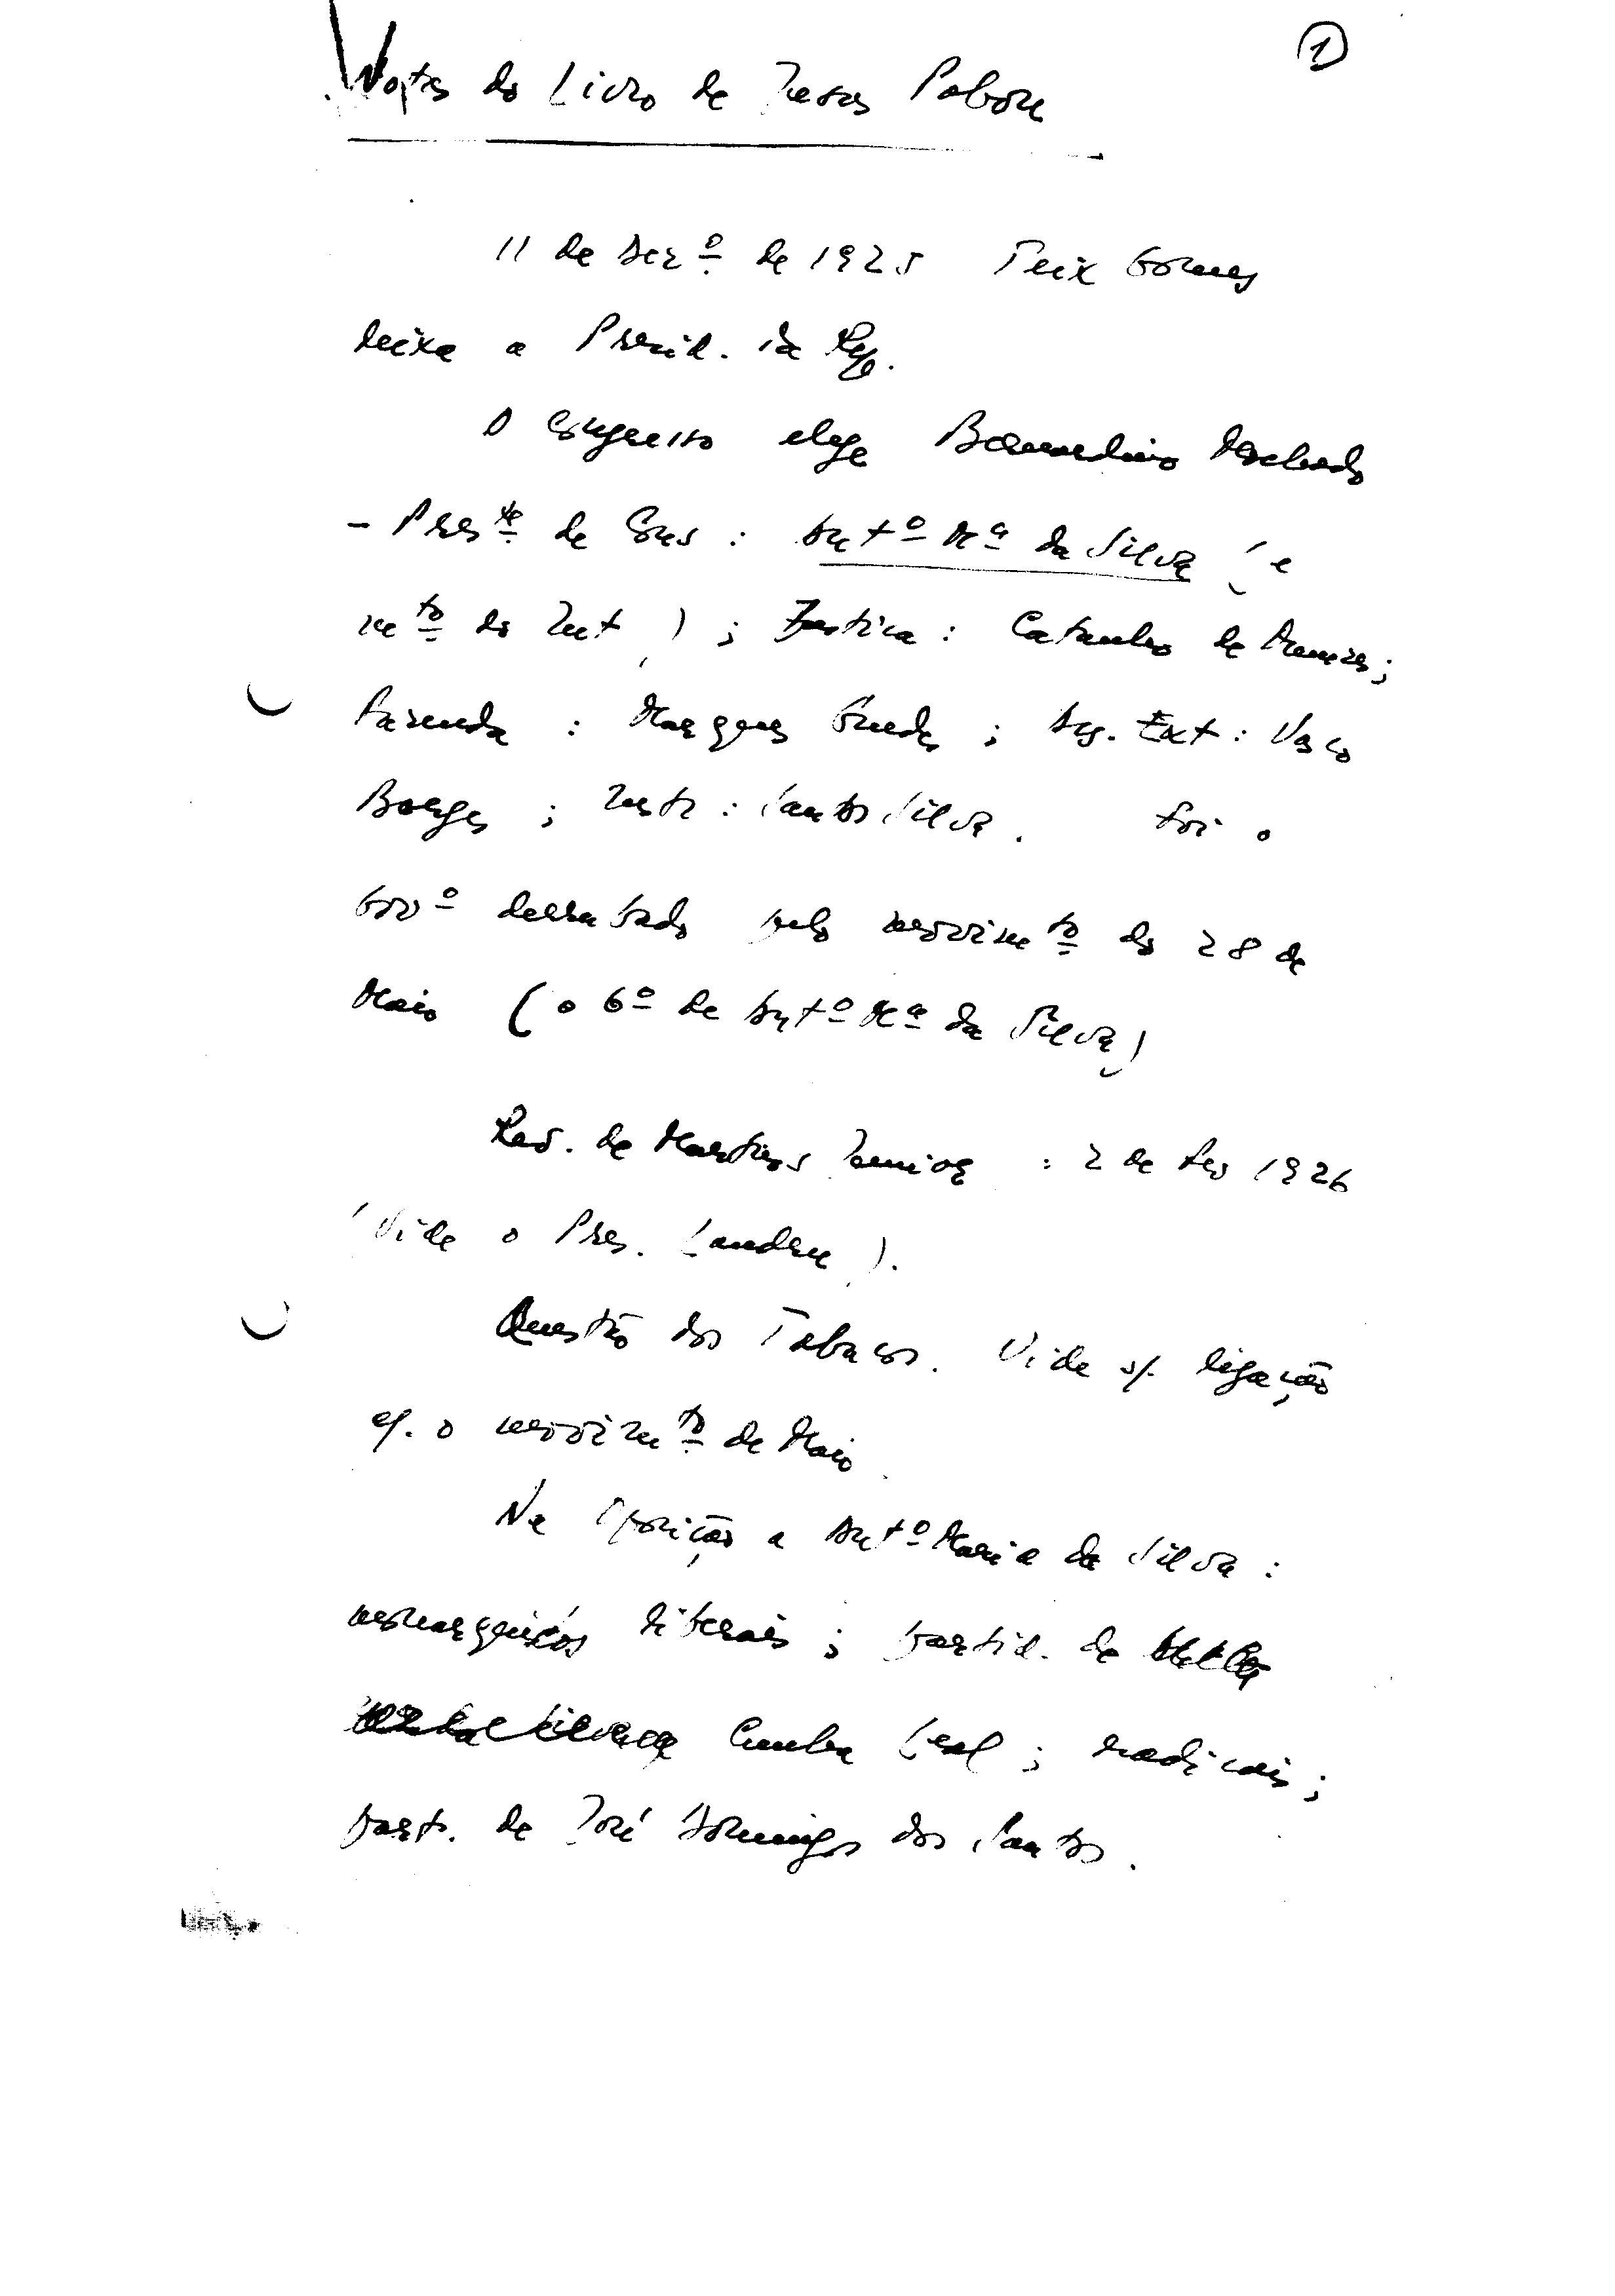 ①
Notas do Livro de Jesus Pabon
11 de Dezº de 1925 Teix Gomes
deixa a Presid. da Rep.
O Congresso elege Bernardino Machado
- Preste de Cons : Antº Mª da Silva (e
mto do Int.) ; Justiça : Catanho de Meneses ;
Fazenda : Marques Guedes ; Neg. Ext : Vasco
Borges ; Instr : Santos Silva . Foi o
Govº derrubado pelo movimto do 28 de
Maio (o 6º de Antº Mª da Silva)
Rev. de Martins Junior : 2 de Fev 1926
(Vide o Pres. Landru ).
Questão dos Tabacos. Vide s/. ligação
c/. o movimto de Maio
Na Oposição a Antº Maria da Silva :
monarquicos liberais ; partid. de
Cunha Leal ; radicais ;
part. de José Domingos dos Santos .